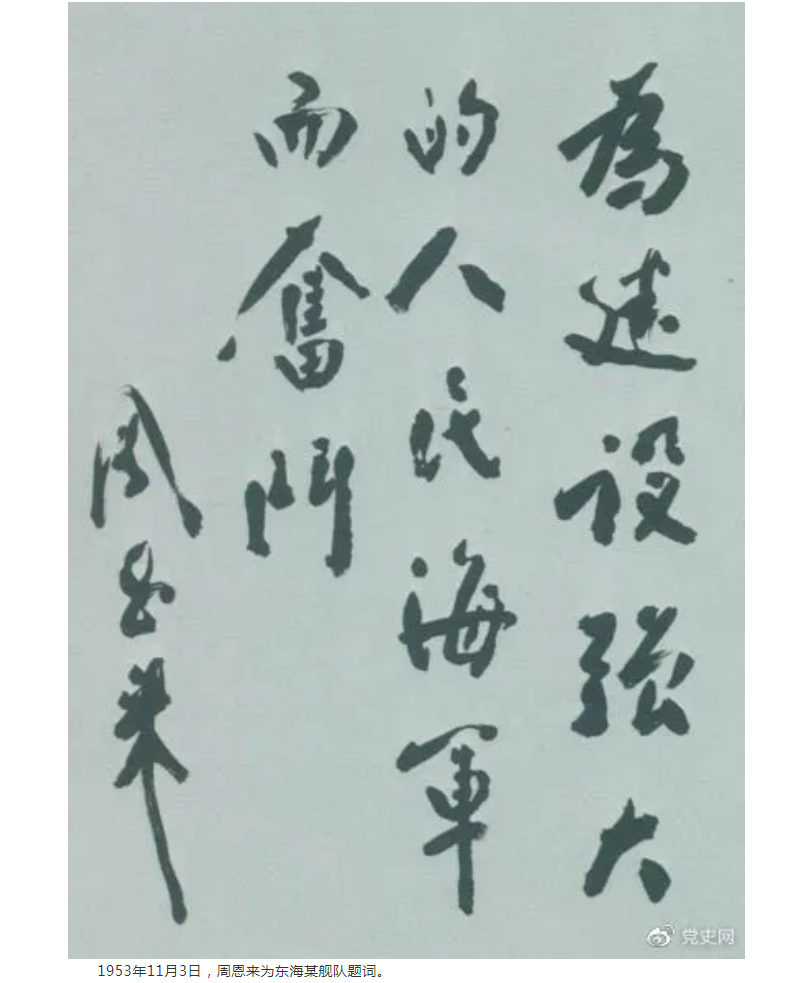 為建设强大
的人民海軍
而奮鬥
周恩来
党史网
1953年11月3日，周恩来为东海某舰队题词。